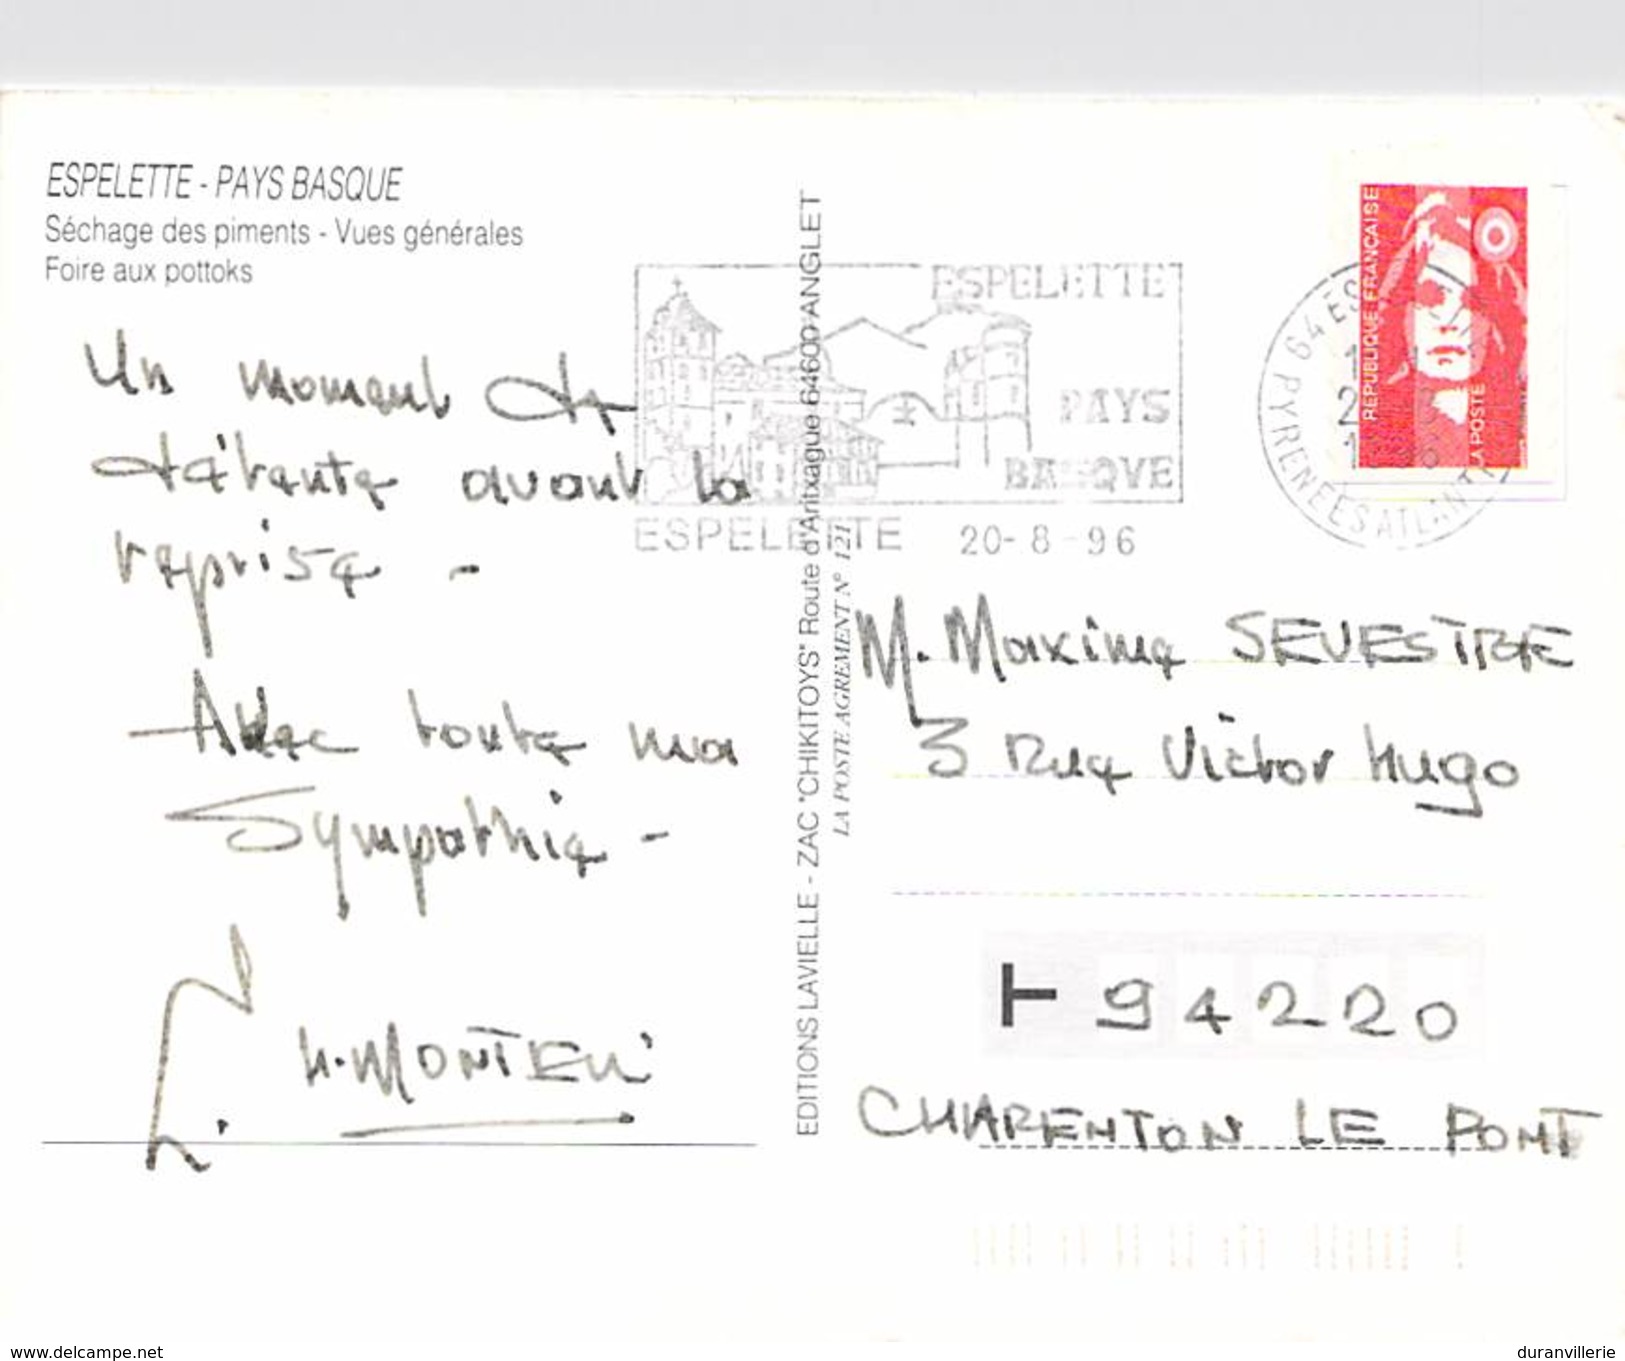 ESPELETTE - PAYS BASQUE
Séchage des piments - Vues générales
Foire aux pottoks
Un moment de
détente avant la
reprise -
Avec toute ma
Sympathie -
EDITIONS LAVIELLE - ZAC "CHIKITOYS" Route d'Aritxague 64600 ANGLET
LA POSTE AGREMENT N° 121
ESPELETTE
PAYS
BASQVE
ESPELETTE 20-8-96
REPUBLIQUE FRANÇAISE
LA POSTE
PYRENEES ATLANT
M. Maxime SEVESTRE
3 Rue Victor Hugo
94220
CHARENTON LE PONT
www.delcampe.net
duranvillerie